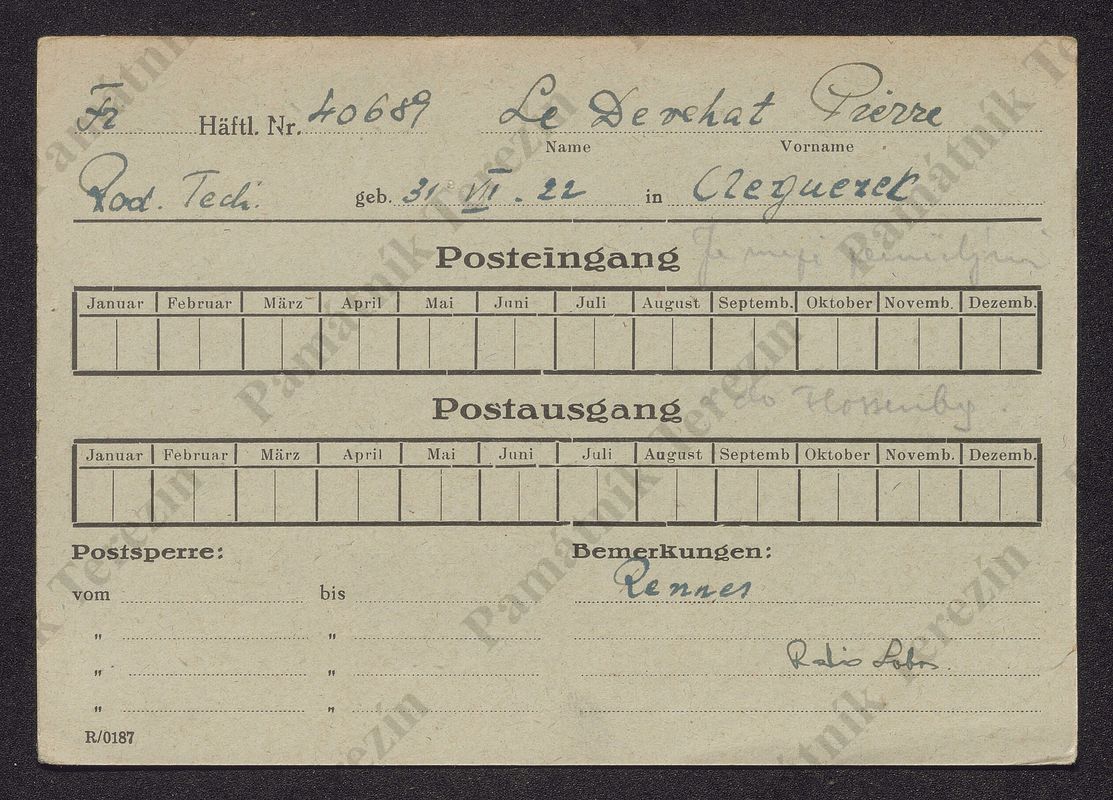 Fr Häftl. Nr. 40689 Le Derehat Pierre
Name Vorname
Rad. Tech. geb. 31 VII. 22 in Cleguerek
Posteingang
Januar Februar März April Mai Juni Juli August Septemb. Oktober Novemb. Dezemb.
Postausgang do Flossenbg.
Januar Februar März April Mai Juni Juli August Septemb Oktober Novemb. Dezemb.
Postsperre: Bemerkungen:
vom bis Rennes
" "
" " Radio Labor
" "
R/0187
Památník Terezín